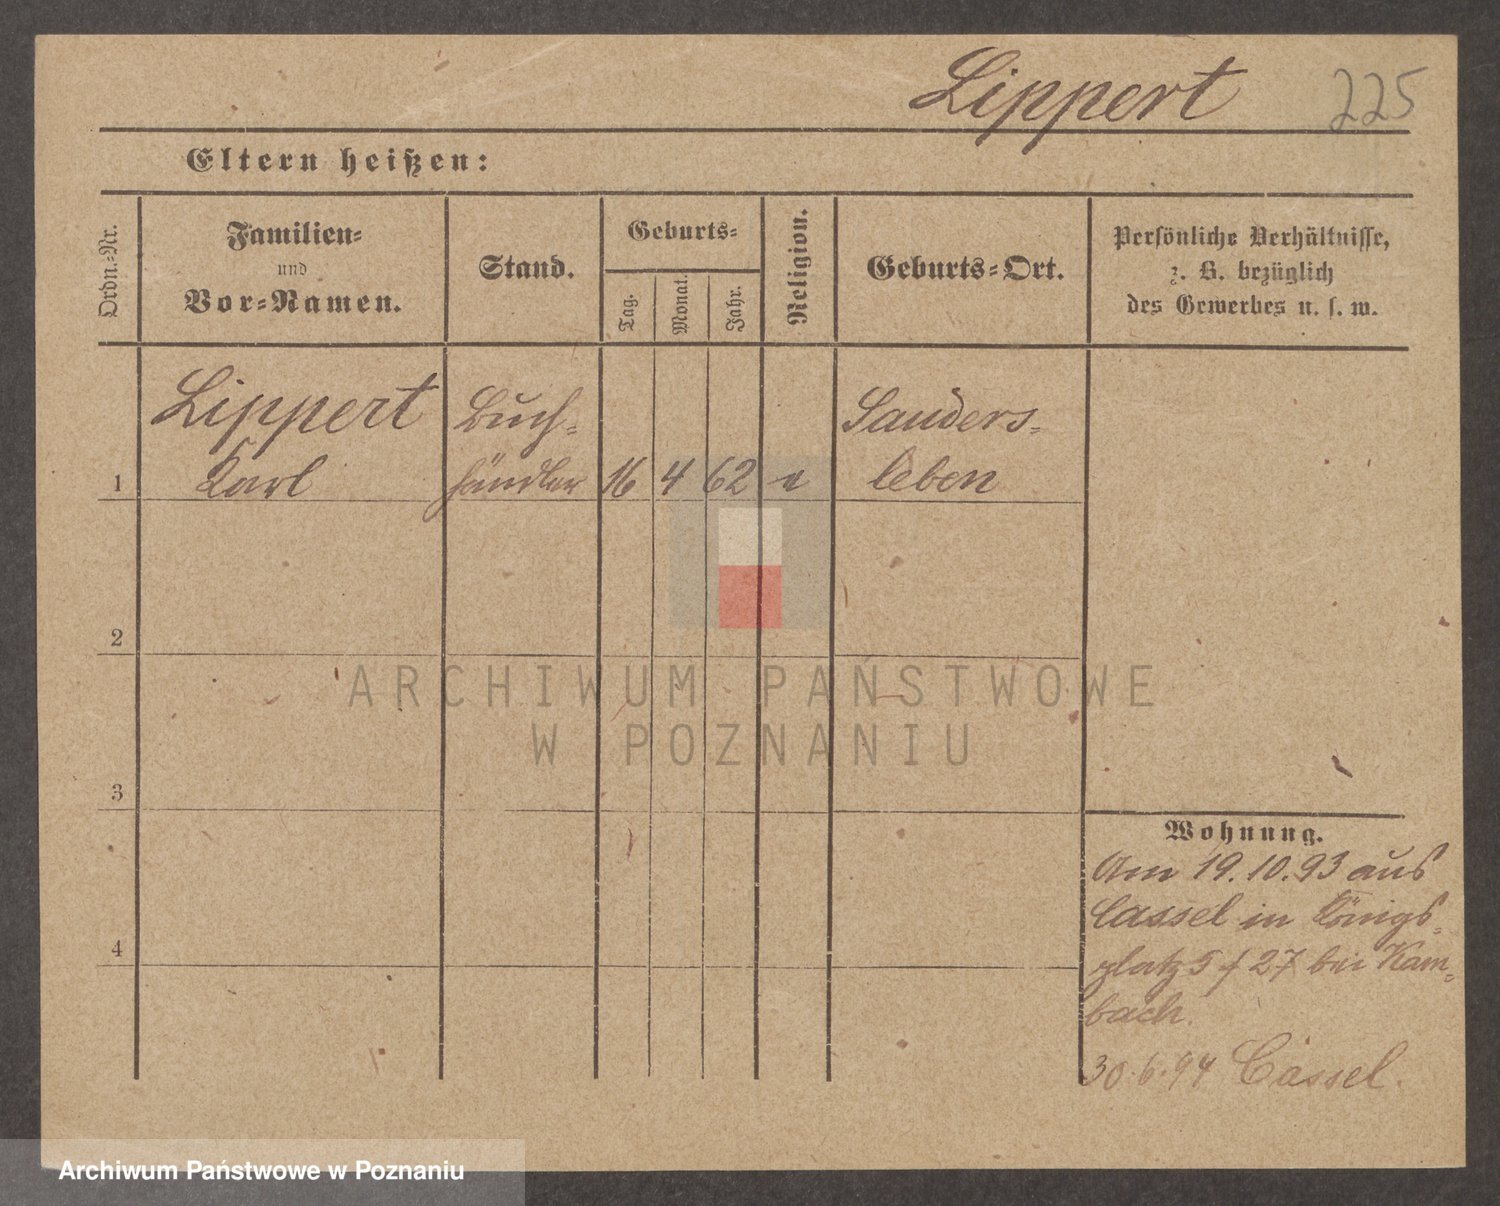 Lippert 225
Eltern heißen:
Ordn.-Nr.
Familien-
und
Vor-Namen.
Stand.
Geburts-
Tag.
Monat.
Jahr.
Religion.
Geburts-Ort.
Persönliche Verhältnisse,
z. B. bezüglich
des Gewerbes u. s. w.
Lippert Buch- Sanders-
1 Karl händler 16 4 62 e leben
2
3
4
Wohnung.
Am 19.10.93 aus
Cassel in Königs-
platz 5 f 27 bei Kam-
bach.
30.6.94 Cassel.
ARCHIWUM PAŃSTWOWE
W POZNANIU
Archiwum Państwowe w Poznaniu